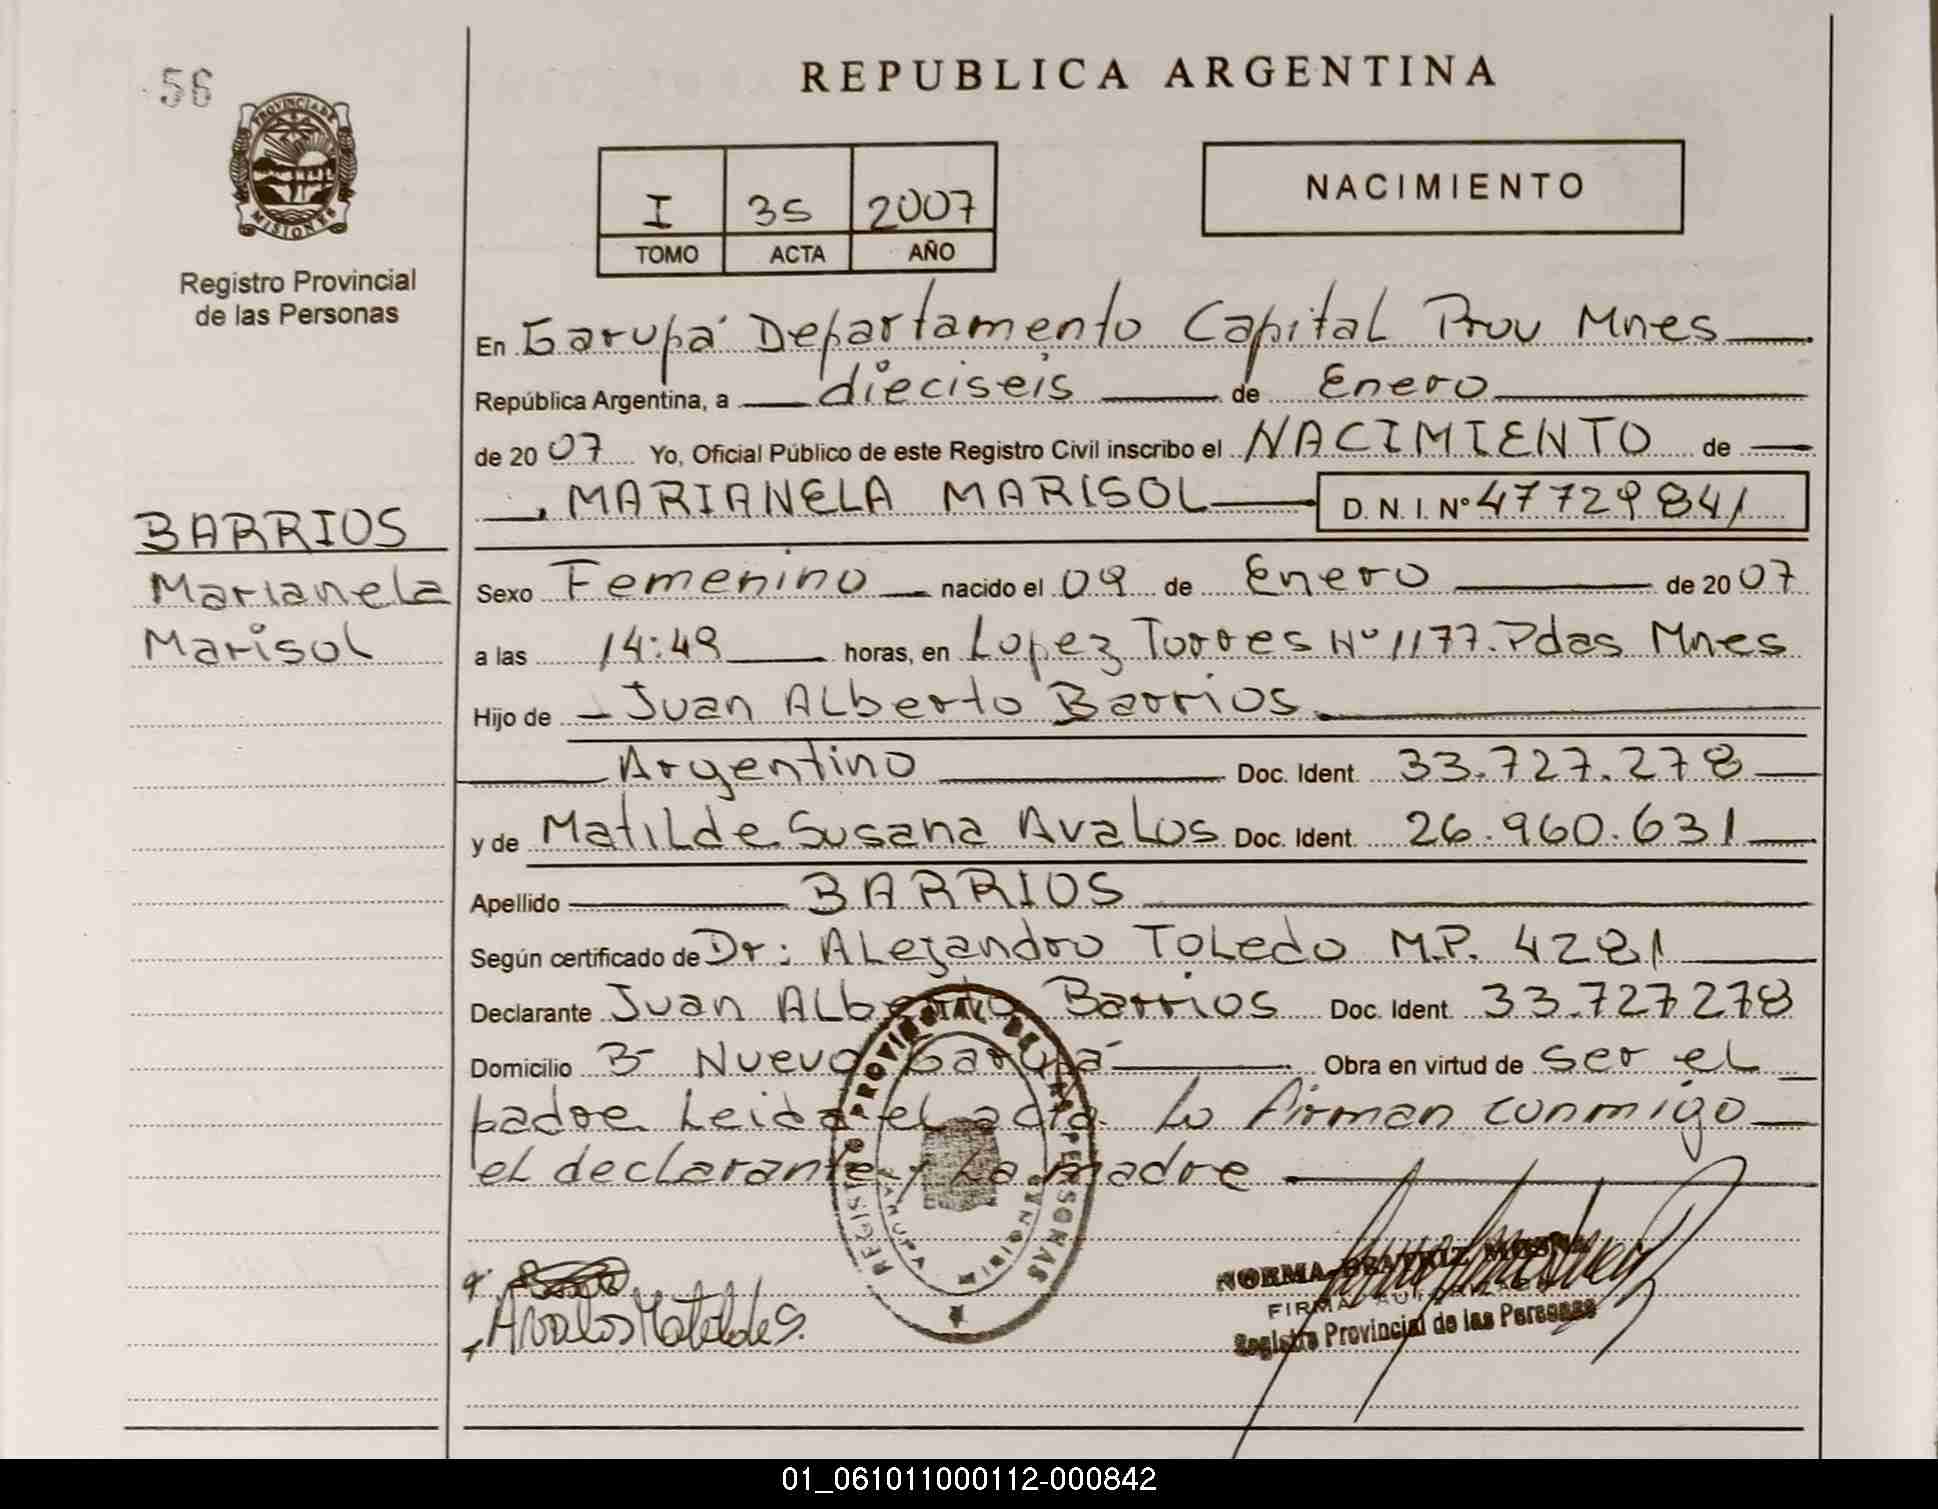 56
REPUBLICA ARGENTINA
PROVINCIA DE
MISIONES
Registro Provincial
de las Personas
I 35 2007
TOMO ACTA AÑO
NACIMIENTO
En Garupá Departamento Capital Prov Mnes
República Argentina, a dieciseis de Enero
de 2007 Yo, Oficial Público de este Registro Civil inscribo el NACIMIENTO de
MARIANELA MARISOL D. N. I. Nº 47729841
BARRIOS
Marianela
Marisol
Sexo Femenino nacido el 09 de Enero de 2007
a las 14:49 horas, en Lopez Torres Nº 1177. Pdas Mnes
Hijo de Juan Alberto Barrios
Argentino Doc. Ident. 33.727.278
y de Matilde Susana Avalos Doc. Ident. 26.960.631
Apellido BARRIOS
Según certificado de Dr: Alejandro Toledo M.P. 4281
Declarante Juan Alberto Barrios Doc. Ident. 33.727278
Domicilio B- Nuevo Garupá Obra en virtud de ser el
padre. Leida el acta. lo firman conmigo
el declarante y La madre
REGISTRO PROVINCIAL DE LAS PERSONAS
GARUPA MISIONES
Avalos Matilde S.
NORMA BEATRIZ
FIRMA AUTORIZADA
Registro Provincial de las Personas
01_061011000112-000842